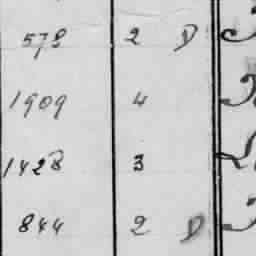 578 2 D
1909 4
1428 3
844 2 D